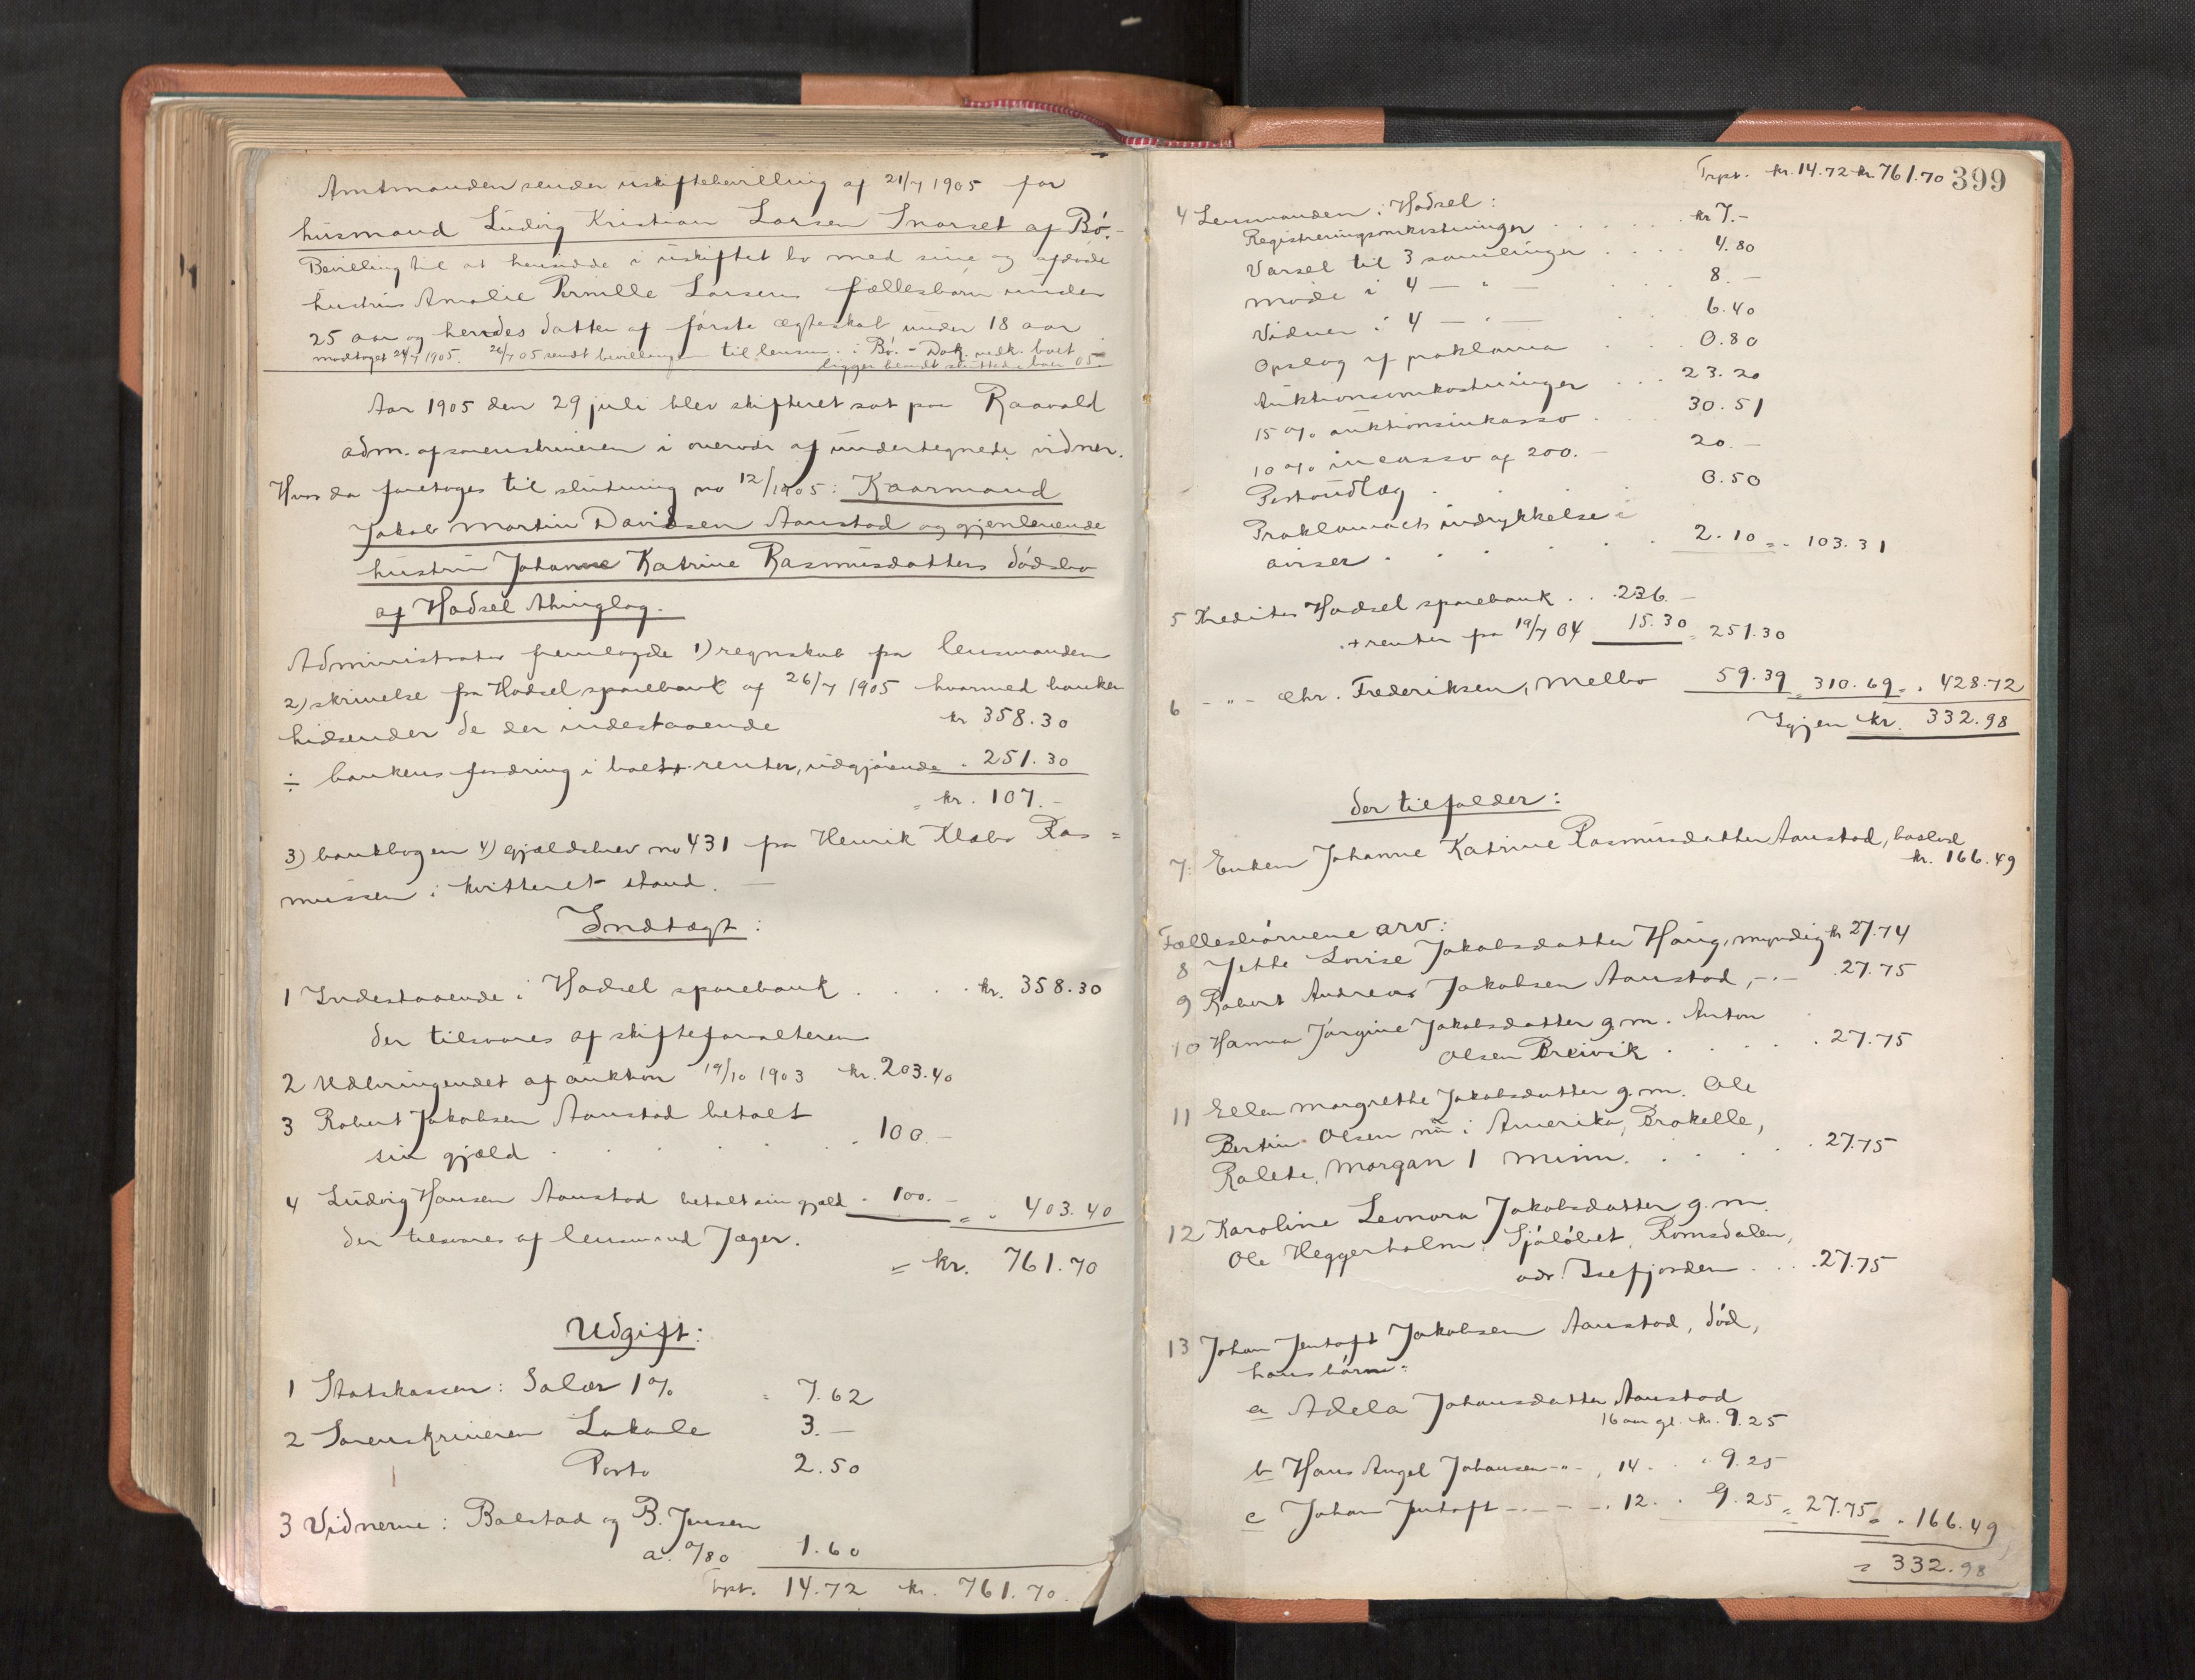 Amtmanden sender uskiftebevilling af 21/7 1905 for
husmand Ludvig Kristian Larsen Snarset af Bø.-
Bevilling til at hensidde i uskiftet bo med sine og afdøde
hustrus Amalie Pernille Larsens fællesbørn under
25 aar og hendes datter af første ægteskab under 18 aar.
modtaget 24/7 1905. 26/7 05 sendt bevillingen til lensm. i Bø. - Dok. vedk. boet
ligger blandt sluttede boer 05
Aar 1905 den 29 juli blev skifteret sat paa Raavold
adm. af sorenskriveren i overvær af undertegnede vidner.
Hvor da foretoges til slutning no 12/1905: Kaarmand
Jakob Martin Davidsen Aanstad og gjenlevende
hustru Johanne Katrine Rasmusdatters dødsbo
af Hadsel thinglag.
Administrator fremlagde 1) regnskab fra lensmanden
2) skrivelse fra Hadsel sparebank af 26/7 1905 hvormed banken
hidsender de der indestaaende kr 358.30
÷ bankens fordring i boet + renter, udgjørende . 251.30
= kr. 107.-
3) bankbogen 4) gjældsbrev no 431 fra Henrik Klæbo Ras =
mussen i kvitteret stand. —
Indtægt:
1 Indestaaende i Hadsel sparebank . . . . kr. 358.30
der tilsvares af skifteforvalteren
2 Udbringendet af auktion 19/10 1903 kr. 203.40
3 Robert Jakobsen Aanstad betalt
sin gjæld . . . . . 100.-
4 Ludvig Hansen Aanstad betalt sin gjæld . 100.- = . 403.40
der tilsvares af lensmand Jæger.
= kr. 761.70
Udgift:
1 Statskassen: Salær 1% = 7.62
2 Sorenskriveren Lokale 3.-
Porto 2.50
3 Vidnerne: Balstad og B. Jensen
a. 0/80 1.60
Trpt. 14.72 kr. 761.70.
Trpt. kr. 14.72 kr. 761.70 399
4 Lensmanden i Hadsel:
Registreringsomkostninger . . . . . kr 7.-
Varsel til 3 samlinger . . . . 4.80
Møde i 4 — " — . . . 8.-
Vidner i 4 — " — . . 6.40
Opslag af proklama . . . 0.80
Auktionsomkostninger . . . 23.20
15 % auktionsinkasso . . . 30.51
10 % incasso af 200.- 20.-
Portoudlæg . . . . 0.50
Proklamaets indrykkelse i
aviser . . . . . 2.10 = . 103.31
5 Kreditor Hadsel sparebank . . . 236.-
+ renter fra 19/7 04 15.30 = 251.30
6 - " - Chr. Frederiksen, Melbo 59.39 = 310.69 = . 428.72
Igjen kr. 332.98
der tilfalder:
7. Enken Johanne Katrine Rasmusdatter Aanstad, boslod
kr. 166.49
Fællesbørnene arv:
8 Jette Lovise Jakobsdatter Haug, myndig kr 27.74
9 Robert Andreas Jakobsen Aanstad, - " - . 27.75
10 Hanna Jørgine Jakobsdatter g.m. Anton
Olsen Breivik . . . . . 27.75
11 Ellen Margrethe Jakobsdatter g.m. Ole
Bertin Olsen nu i Amerika, Brakelle,
Ralete, Morgan 1 Minn. . . . . . 27.75
12 Karoline Leonora Jakobsdatter g.m.
Ole Heggerholm, Sjøløbet, Romsdalen,
adr. Isefjorden . . . 27.75
13 Johan Jentoft Jakobsen Aanstad, død,
hans børn:
a Adela Johansdatter Aanstad
16 aar gl. kr. 9.25
b Hans Angel Johansen - " - , 14 . . 9.25
c Johan Jentoft — " — . 12 . . 9.25 = 27.75 = . 166.49
= 332.98